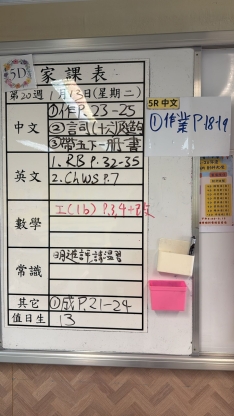 5D
家課表
第20週 1月13日(星期二)
中文
①作P.23-25
②言司(十六)
③帶五下一冊書
英文
1. RB P.32-35
2. Ch WS P.7
數學
工(1b) P.3,4
常識
明進評請溫習
其它
①成P.21-24
值日生
13
5R 中文
①作業P18-19